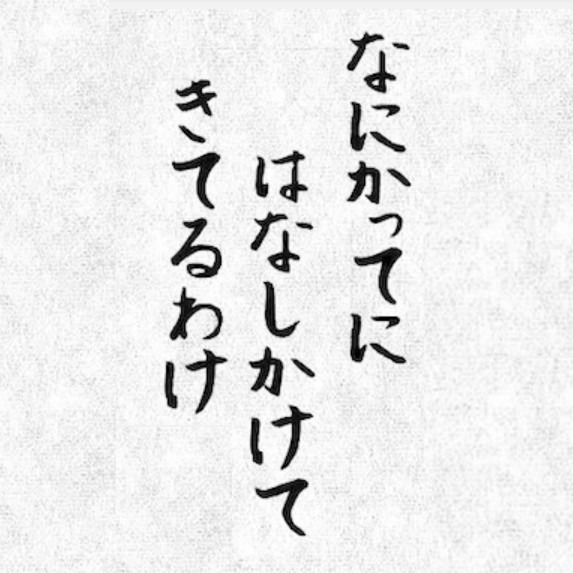 なにかってに
はなしかけて
きてるわけ